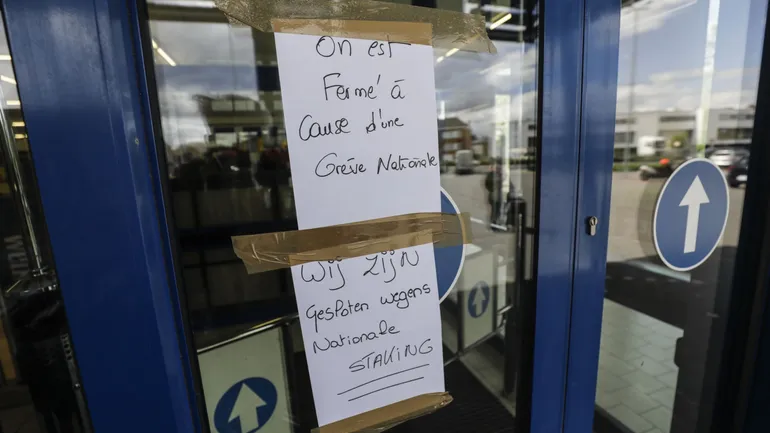 On est
Fermé à
Cause d'une
Grève Nationale
Wij zijn
Gesploten wegens
Nationale
STAKING